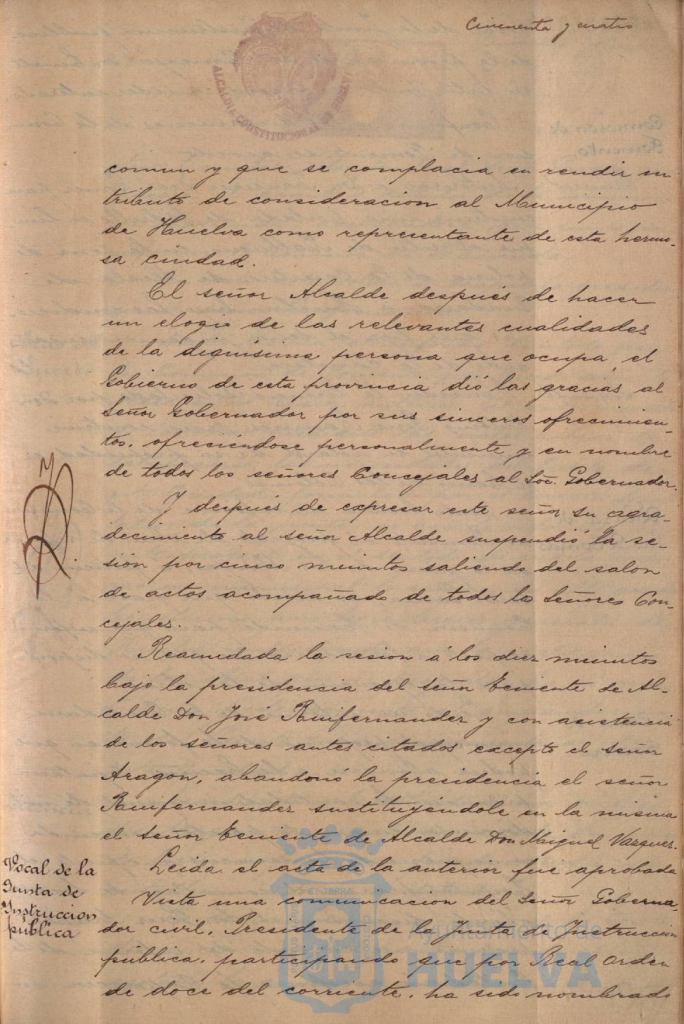 Cincuenta y cuatro
ALCALDIA CONSTITUCIONAL DE HUELVA
comun y que se complacia en rendir un
tributo de consideracion al Municipio
de Huelva como representante de esta hermo-
sa ciudad.
El señor Alcalde después de hacer
un elogio de las relevantes cualidades
de la diguisima persona que ocupa, el
Gobierno de esta provincia dió las gracias al
Señor Gobernador por sus sinceros ofrecimien-
tos, ofreciéndose personalmente y en nombre
de todos los señores Concejales al Gobernador.
Y después de expresar este señor su agra-
decimiento al señor Alcalde suspendió la se-
sión por cinco minutos saliendo del salon
de actos acompañado de todos los Señores Con-
cejales.
Reanudada la sesion á los diez minutos
bajo la presidencia del señor Teniente de Al-
calde Don José Ruifernandez y con asistencia
de los señores antes citados excepto el señor
Aragon, abandonó la presidencia el señor
Ruifernandez sustituyéndole en la misma
el señor Teniente de Alcalde Don Miguel Vazquez.
Leida el acta de la anterior fué aprobada
Vocal de la
Junta de
Instruccion
pública
Vista una comunicacion del Señor Goberna-
dor civil, Presidente de la Junta de Instrucción
pública, participando que por Real Orden
de doce del corriente, ha sido nombrado
Ayuntamiento de
HUELVA